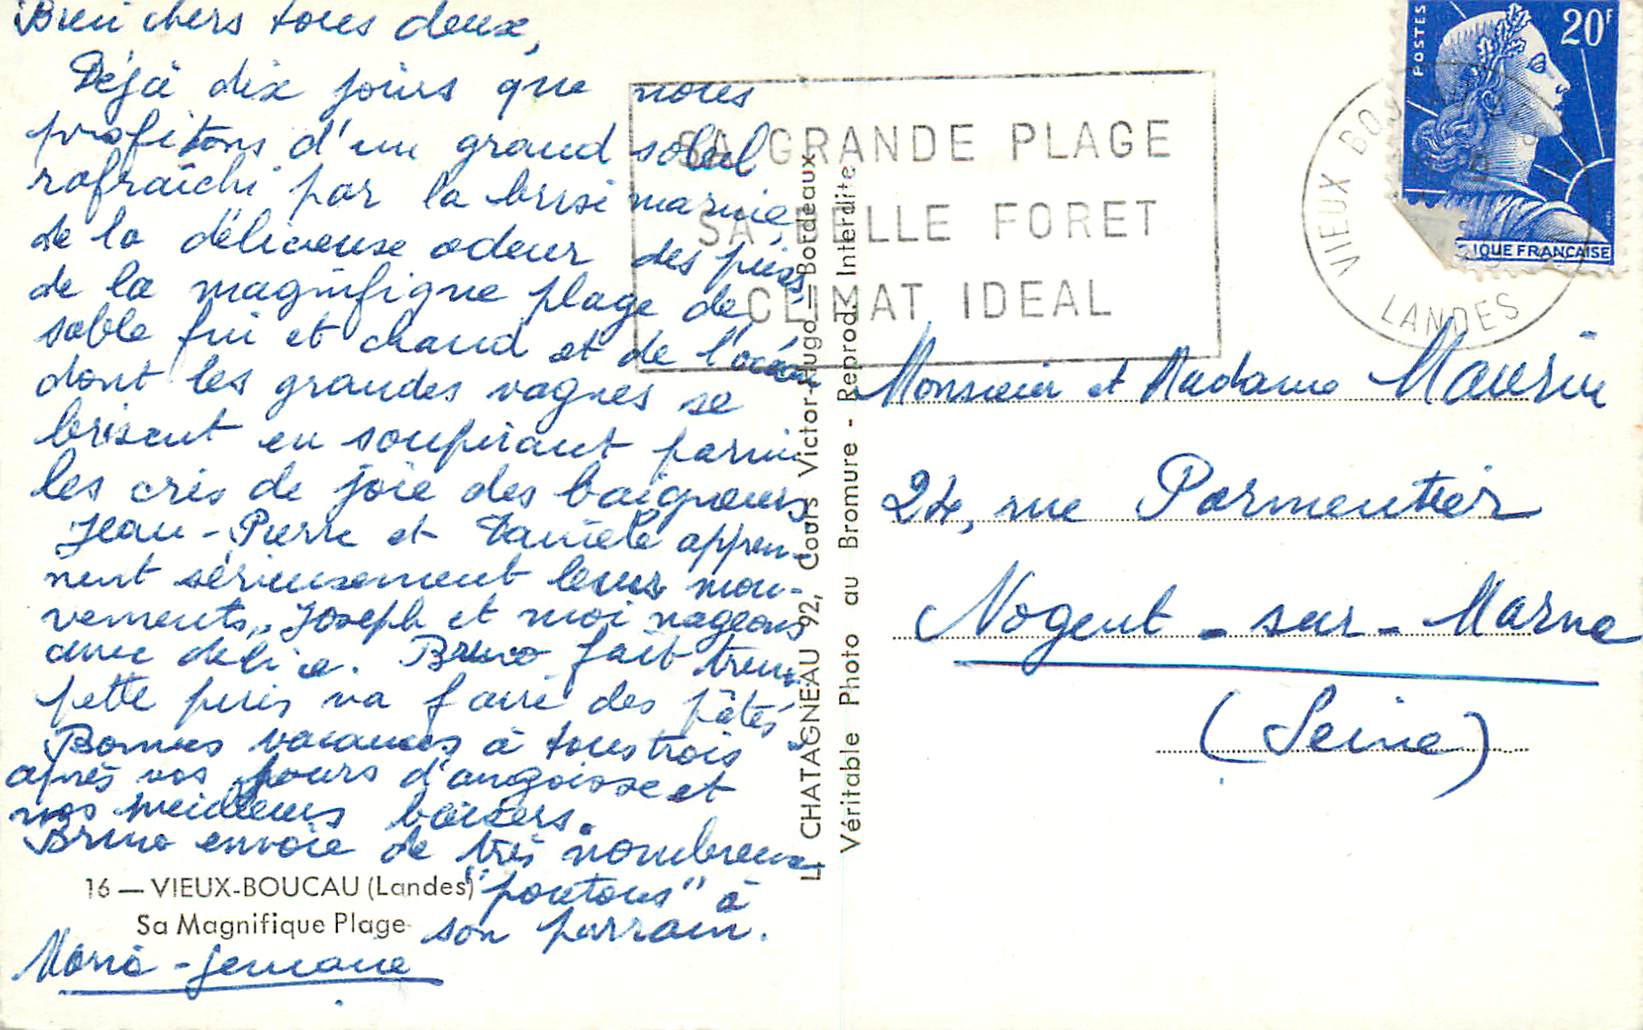 Bien chers tous deux,
Déjà dix jours que nous
profitons d'un grand soleil
rafraîchi par la brise marine,
de la délicieuse odeur des pins,
de la magnifique plage de
sable fin et chaud et de l'océan
dont les grandes vagues se
brisent en soupirant parmi
les cris de joie des baigneurs
Jean-Pierre et Danièle appren-
nent sérieusement leurs mou-
vements, Joseph et moi nageons
avec délice. Bruno fait trem-
pette puis va faire des pâtés.
Bonnes vacances à tous trois
après vos jours d'angoisse et
nos meilleurs baisers.
Bruno envoie de très nombreux
"poutous" à
son parrain.
Marie-Germaine
16 — VIEUX-BOUCAU (Landes)
Sa Magnifique Plage
L. CHATAGNEAU 92, Cours Victor-Hugo - Bordeaux
Véritable Photo au Bromure - Reprod. Interdite
SA GRANDE PLAGE
SA BELLE FORET
CLIMAT IDEAL
VIEUX BOU
LANDES
POSTES
20F
IQUE FRANÇAISE
Monsieur et Madame Maurin
24, rue Parmentier
Nogent-sur-Marne
(Seine)